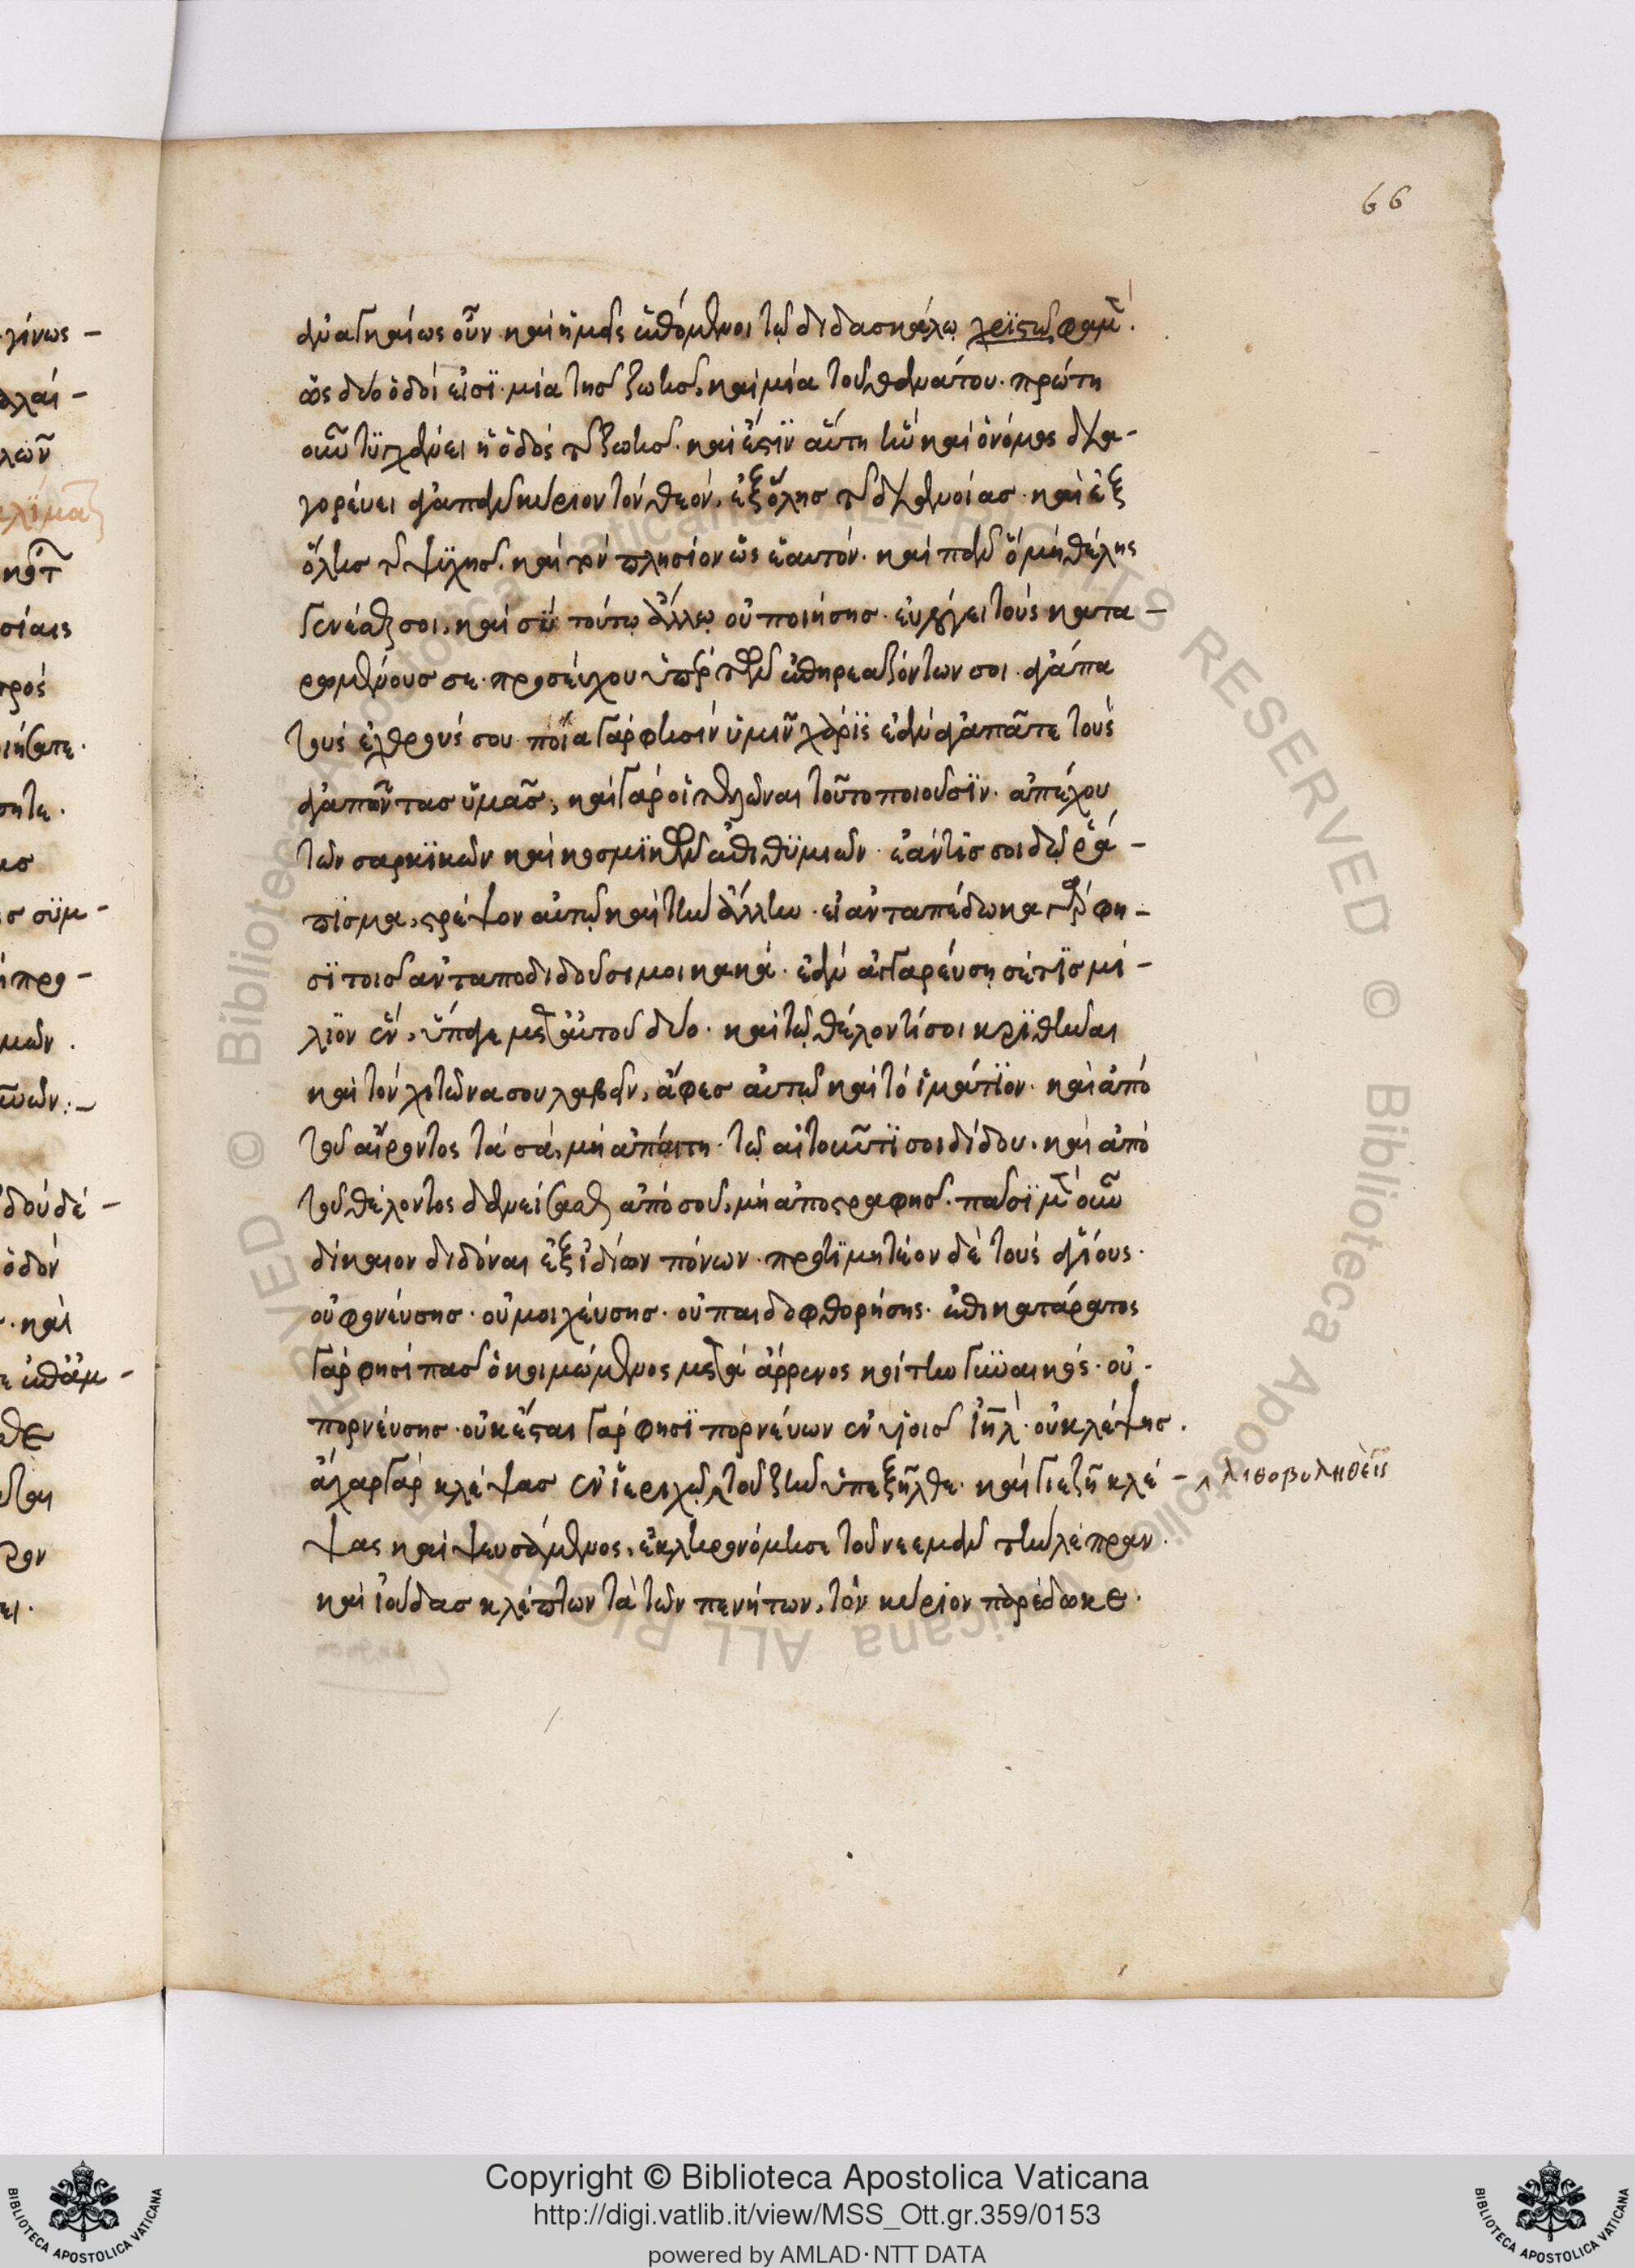 66
ἀναγκαίως οὖν καὶ ἡμεῖς ἑπόμενοι τῷ διδασκάλῳ χριστῷ φαμέν.
ὡς δύο ὁδοί εἰσι· μία τῆς ζωῆς, καὶ μία τοῦ θανάτου. πρώτη
οὖν τυγχάνει ἡ ὁδὸς τῆς ζωῆς. καὶ ἔστιν αὕτη ἣν καὶ ὁ νόμος δια-
γορεύει ἀγαπᾶν κύριον τὸν θεόν, ἐξ ὅλης τῆς διανοίας καὶ ἐξ
ὅλης τῆς ψυχῆς. καὶ τὸν πλησίον ὡς ἑαυτόν. καὶ πᾶν ὃ μὴ θέλης
γενέσθαι σοι, καὶ σὺ τούτῳ ἄλλῳ οὐ ποιήσης. εὐλόγει τοὺς κατα-
ρωμένους σε. προσεύχου ὑπὲρ τῶν ἐπηρεαζόντων σοι. ἀγάπα
τοὺς ἐχθρούς σου. ποία γάρ φησιν ὑμῖν χάρις ἐὰν ἀγαπᾶτε τοὺς
ἀγαπῶντας ὑμᾶς, καὶ γὰρ οἱ τελῶναι τοῦτο ποιοῦσιν. ἀπέχου
τῶν σαρκικῶν καὶ κοσμικῶν ἐπιθυμιῶν. ἐάν τις σοι δῷ ῥά-
πισμα, στρέψον αὐτῷ καὶ τὴν ἄλλην. εἰ ἀνταπέδωκα γάρ φη-
σι τοῖς ἀνταποδιδοῦσι μοι κακά. ἐὰν ἀγγαρεύση σέ τις μί-
λιον ἕν, ὕπαγε μετ' αὐτοῦ δύο. καὶ τῷ θέλοντί σοι κριθῆναι
καὶ τὸν χιτῶνα σου λαβεῖν, ἄφες αὐτῷ καὶ τὸ ἱμάτιον. καὶ ἀπὸ
τοῦ αἴροντος τὰ σά, μὴ ἀπαίτη. τῷ αἰτοῦντι σοι δίδου. καὶ ἀπὸ
τοῦ θέλοντος δανείσασθαι ἀπὸ σοῦ, μὴ ἀποστραφῆς. πᾶσι μὲν οὖν
δίκαιον διδόναι ἐξ ἰδίων πόνων. προτιμητέον δὲ τοὺς ἁγίους.
οὐ φονεύσης. οὐ μοιχεύσης. οὐ παιδοφθορήσης. ἐπικατάρατος
γάρ φησι πᾶς ὁ κοιμώμενος μετὰ ἄρρενος κοίτην γυναικός. οὐ
πορνεύσης. οὐκ ἔσται γάρ φησι πορνεύων ἐν υἱοῖς ἰηλ. οὐ κλέψης.
ἄχαρ γὰρ κλέψας ἐν ἱεριχῷ, τοῦ ζῆν ὑπεξῆλθε. καὶ γιεζῆ κλέ- λιθοβοληθεὶς
ψας καὶ ψευσάμενος, ἐκληρονόμησε τοῦ νεεμὰν τὴν λέπραν.
καὶ ἰούδας κλέπτων τὰ τῶν πενήτων, τὸν κύριον παρέδωκε.
Copyright © Biblioteca Apostolica Vaticana
http://digi.vatlib.it/view/MSS_Ott.gr.359/0153
powered by AMLAD·NTT DATA